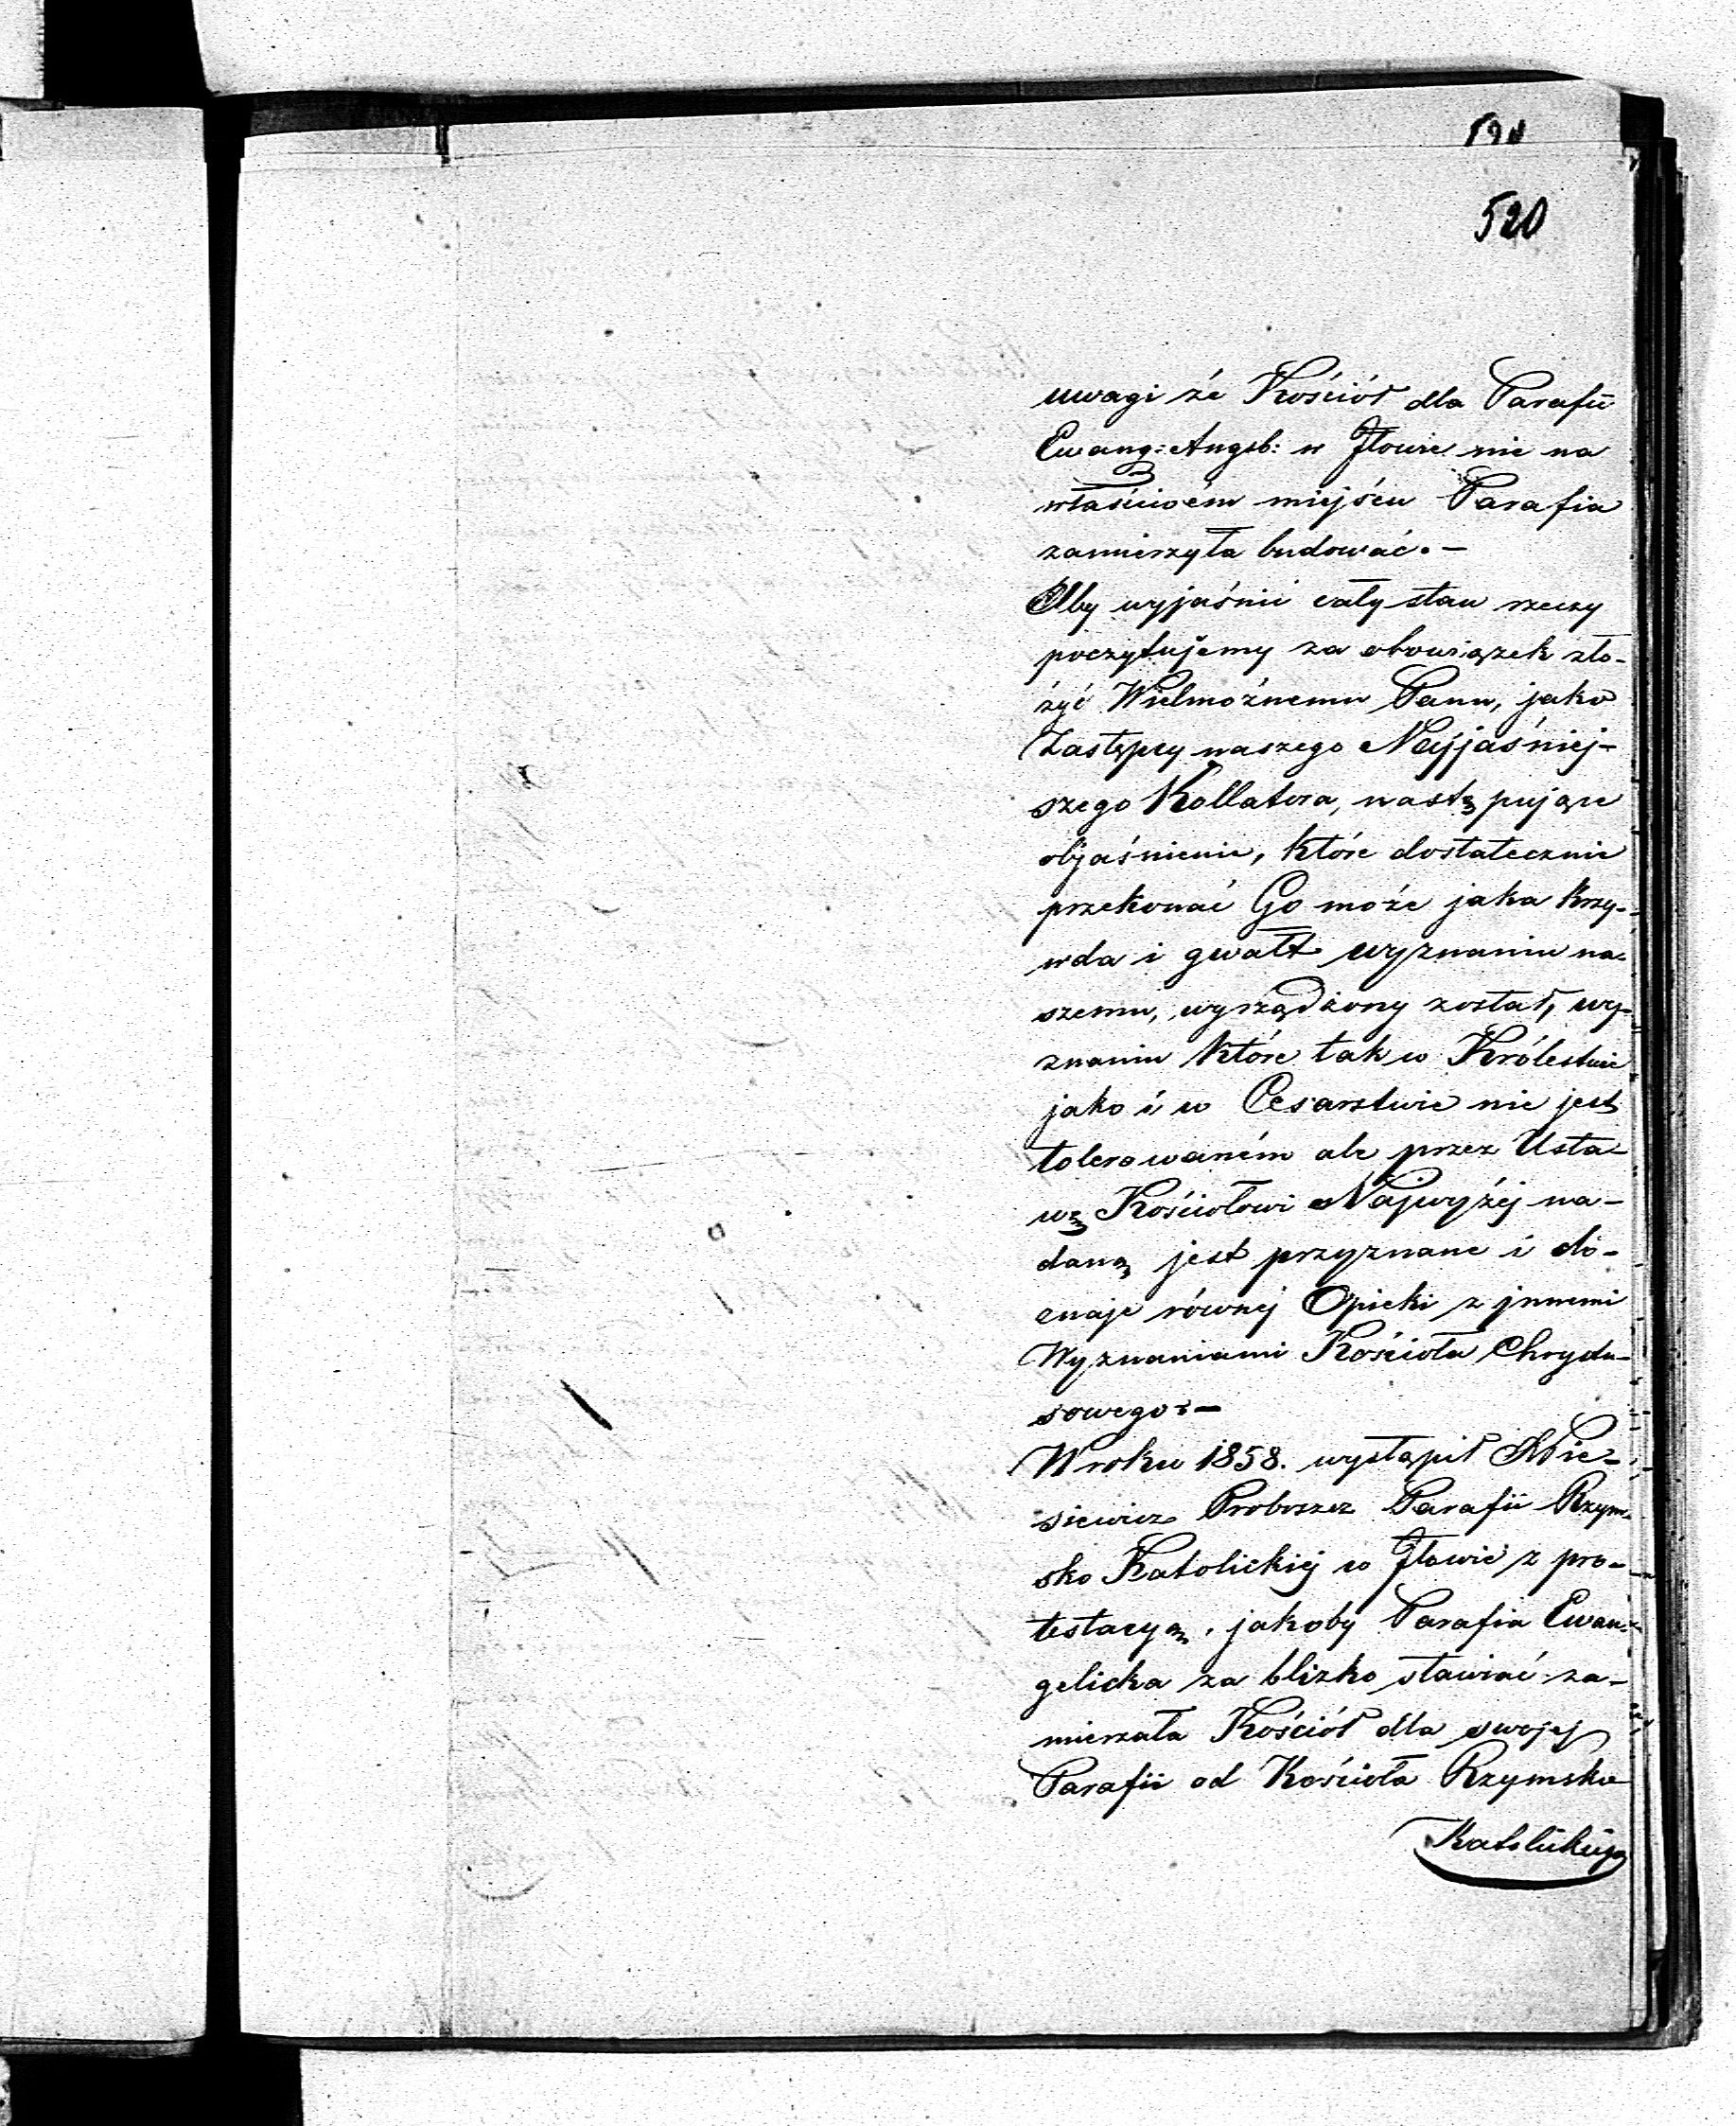 520
uwagi że Kościół dla Parafii
Ewang: Augsb: w Jłowie nie na
właściwém miejścu Parafia
zamierzyła budować. –
Aby wyjaśnić cały stan rzeczy
poczytujemy za obowiązek zło-
żyć Wielmożnemu Panu, jako
Zastępcy naszego Najjaśniej-
szego Kollatora, następujące
objaśnienie, które dostatecznie
przekonać Go może jaka krzy-
wda i gwałt wyznaniu na-
szemu, wyrządzony został, wy-
znaniu które tak w Królestwie
jako i w Cesarstwie nie jest
tolerowaném ale przez Usta-
wę Kościołowi Najwyżéj na-
daną jest przyznane i do-
znaje równej Opieki z jnnemi
Wyznaniami Kościoła Chrystu-
sowego. –
W roku 1858. wystąpił
siewicz Proboszcz Parafii Rzym-
sko Katolickiéj w Jłowie z pro-
testacyą, jakoby Parafia Ewan-
gelicka za blizko stawiać za-
mierzała Kościół dla swojej
Parafii od Kościoła Rzymsko